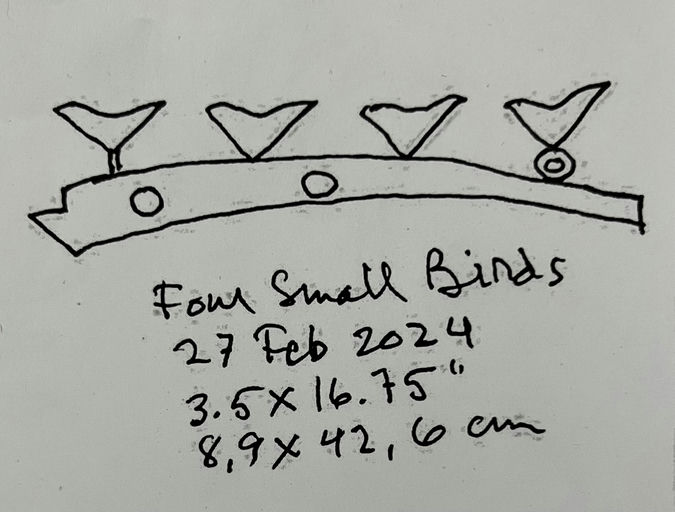 Four Small Birds
27 Feb 2024
3.5 x 16.75"
8,9 x 42,6 cm